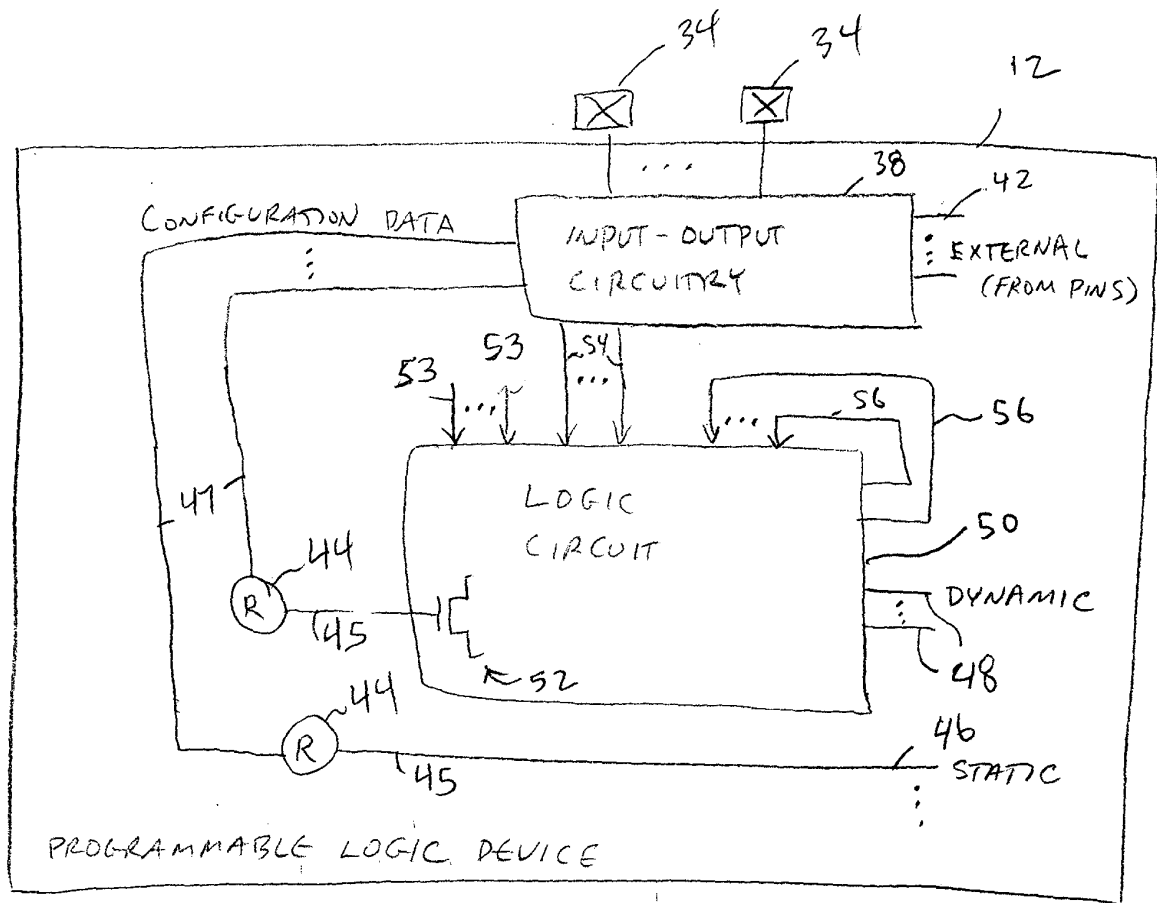 34
34
12
38
42
CONFIGURATION DATA
INPUT-OUTPUT
CIRCUITRY
EXTERNAL
(FROM PINS)
53
53
54
56
56
LOGIC
CIRCUIT
47
50
44
R
45
DYNAMIC
52
48
44
R
45
46
STATIC
PROGRAMMABLE LOGIC DEVICE